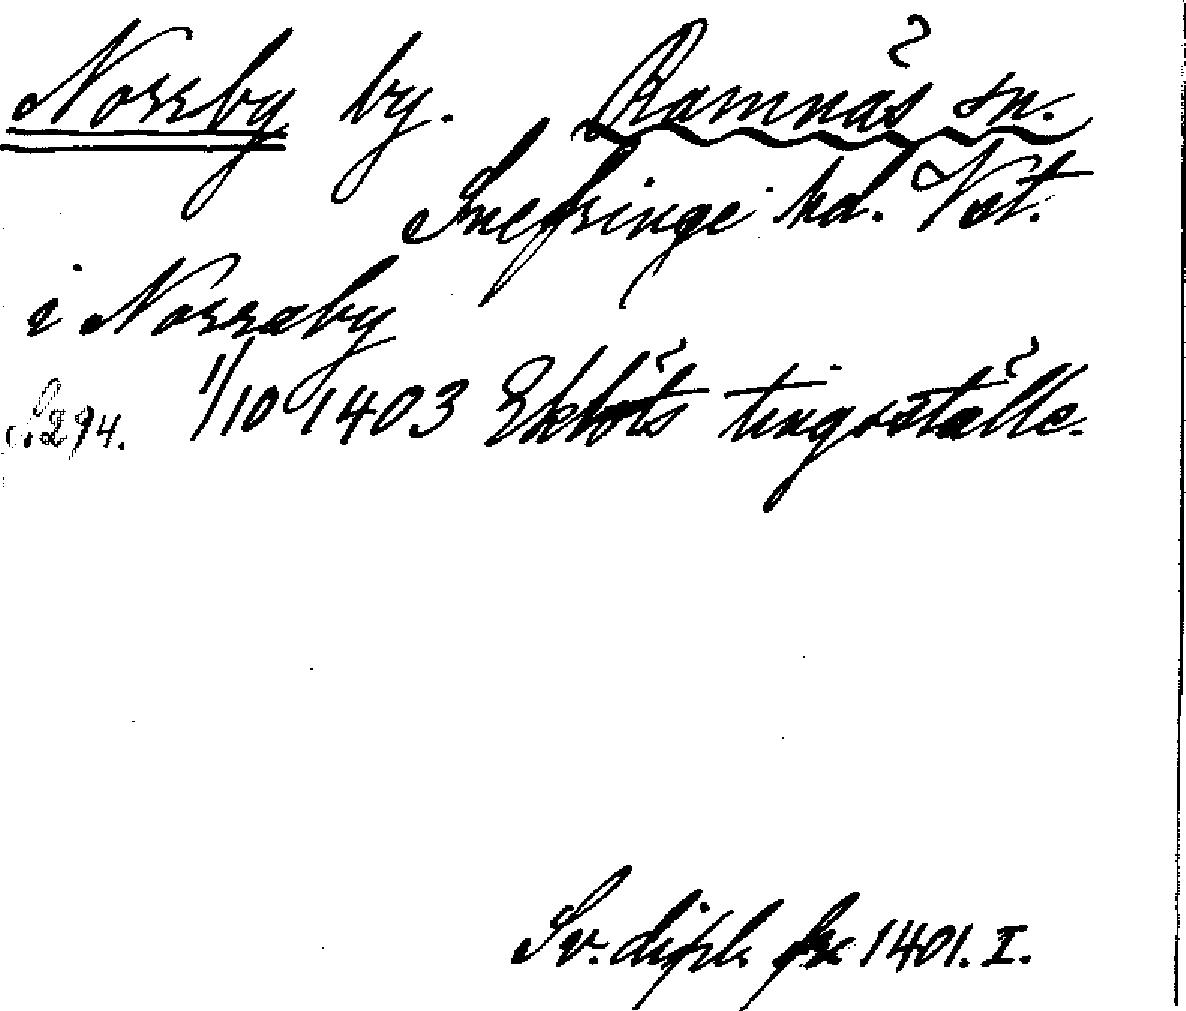 Norrby by. Ramnäs sn.
Snefringe hd. Vst.
i Norraby
S. 294. 1/10 1403 Ekbots tingsställe.
Sv. dipl. fr 1401. I.